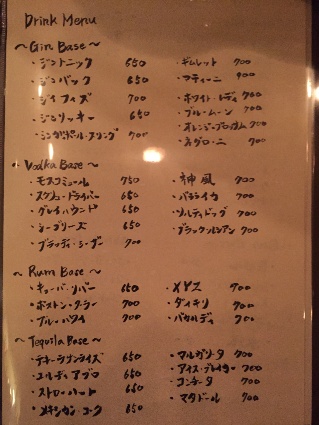 Drink Menu
~ Gin Base ~
・ジントニック 650 ・ギムレット 700
・ジンバック 650 ・マティーニ 900
・ジンフィズ 700 ・ホワイト・レディ 700
・ジンリッキー 650 ・ブルームーン 700
・シンガポール・スリング 700 ・オレンジブロッサム 700
・ネグローニ 700
~ Vodka Base ~
・モスコミュール 750 ・神風 700
・スクリュードライバー 650 ・バラライカ 700
・グレイハウンド 650 ・ソルティドッグ 700
・シーブリーズ 650 ・ブラックルシアン 700
・ブラッディ・シーザー 700
~ Rum Base ~
・キューバ・リバー 650 ・XYZ 700
・ボストン・クーラー 700 ・ダイキリ 700
・ブルーハワイ 700 ・バカルディ 700
~ Tequila Base ~
・テキーラサンライズ 650 ・マルガリータ 700
・エル・ディアブロ 650 ・アイス・ブレイカー 700
・ストローハット 650 ・コンチータ 700
・メキシカン・コーク 650 ・マタドール 700